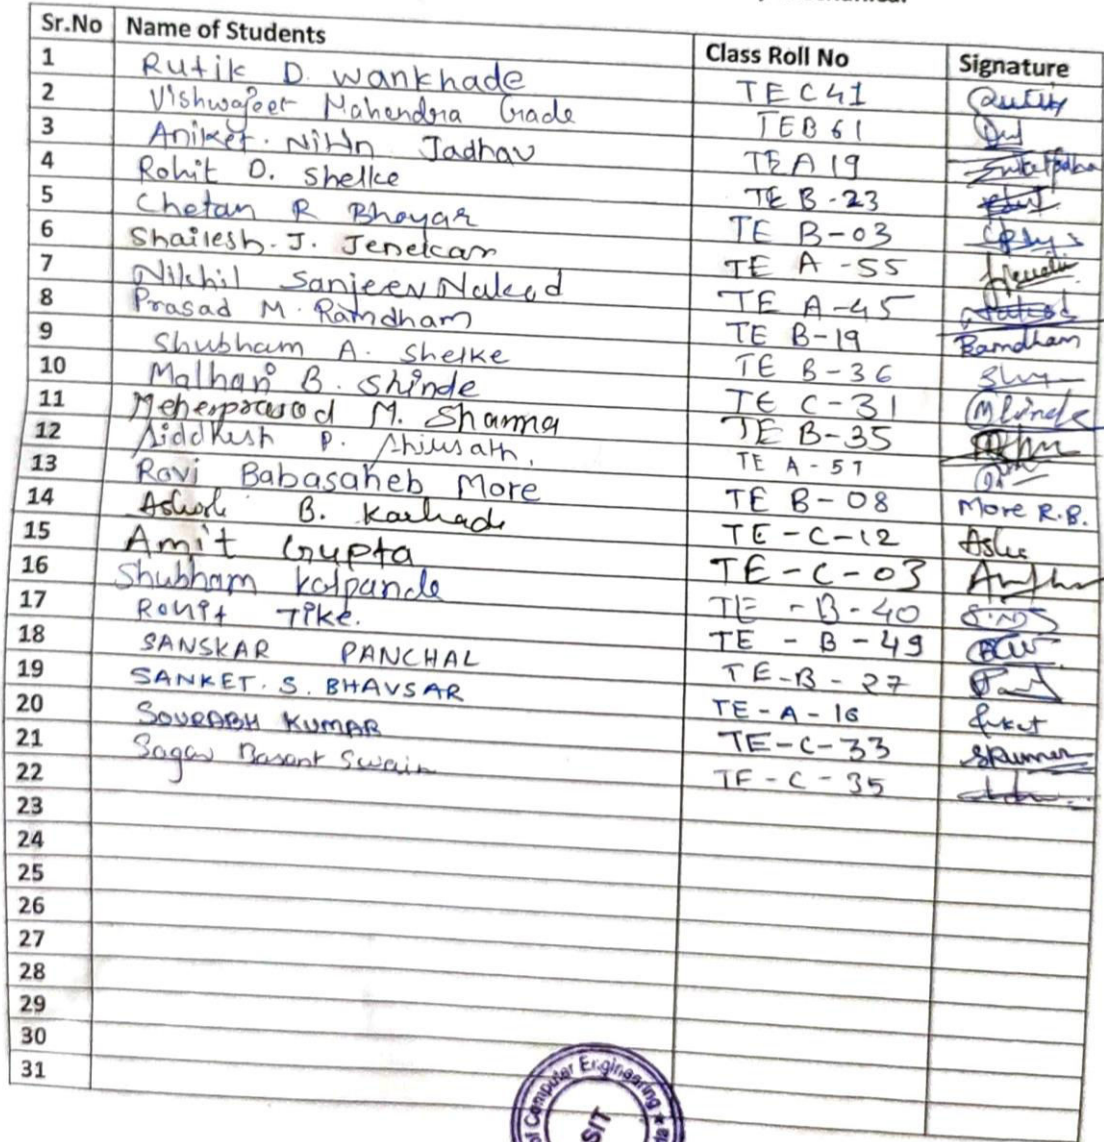 Sr.No Name of Students Class Roll No Signature
1 Rutik D. Wankhade TEC41
2 Vishwajeet Mahendra Gade TEB 61
3 Aniket. Nitin Jadhav TE A 19
4 Rohit D. Shelke TE B-23
5 Chetan R Bhoyar TE B-03
6 Shailesh. J. Jenekar TE A-55
7 Nikhil Sanjeev Nakod TE A-45
8 Prasad M. Ramdham TE B-19 Ramdham
9 Shubham A. Shelke TE B-36
10 Malhari B. Shinde TE C-31
11 Meherprasad M. Sharma TE B-35
12 Siddhesh P. Shirsath. TE A-57
13 Ravi Babasaheb More TE B-08 More R.B.
14 Ashok B. Karhade TE-C-12
15 Amit Gupta TE-C-03
16 Shubham Kalpande TE-B-40
17 Rohit Tike. TE-B-49
18 SANSKAR PANCHAL TE-B-27
19 SANKET. S. BHAVSAR TE-A-16
20 SOURABH KUMAR TE-C-33 SKumar
21 Sagar Basant Swain TE-C-35
22
23
24
25
26
27
28
29
30
31
Computer Engineering
SIT